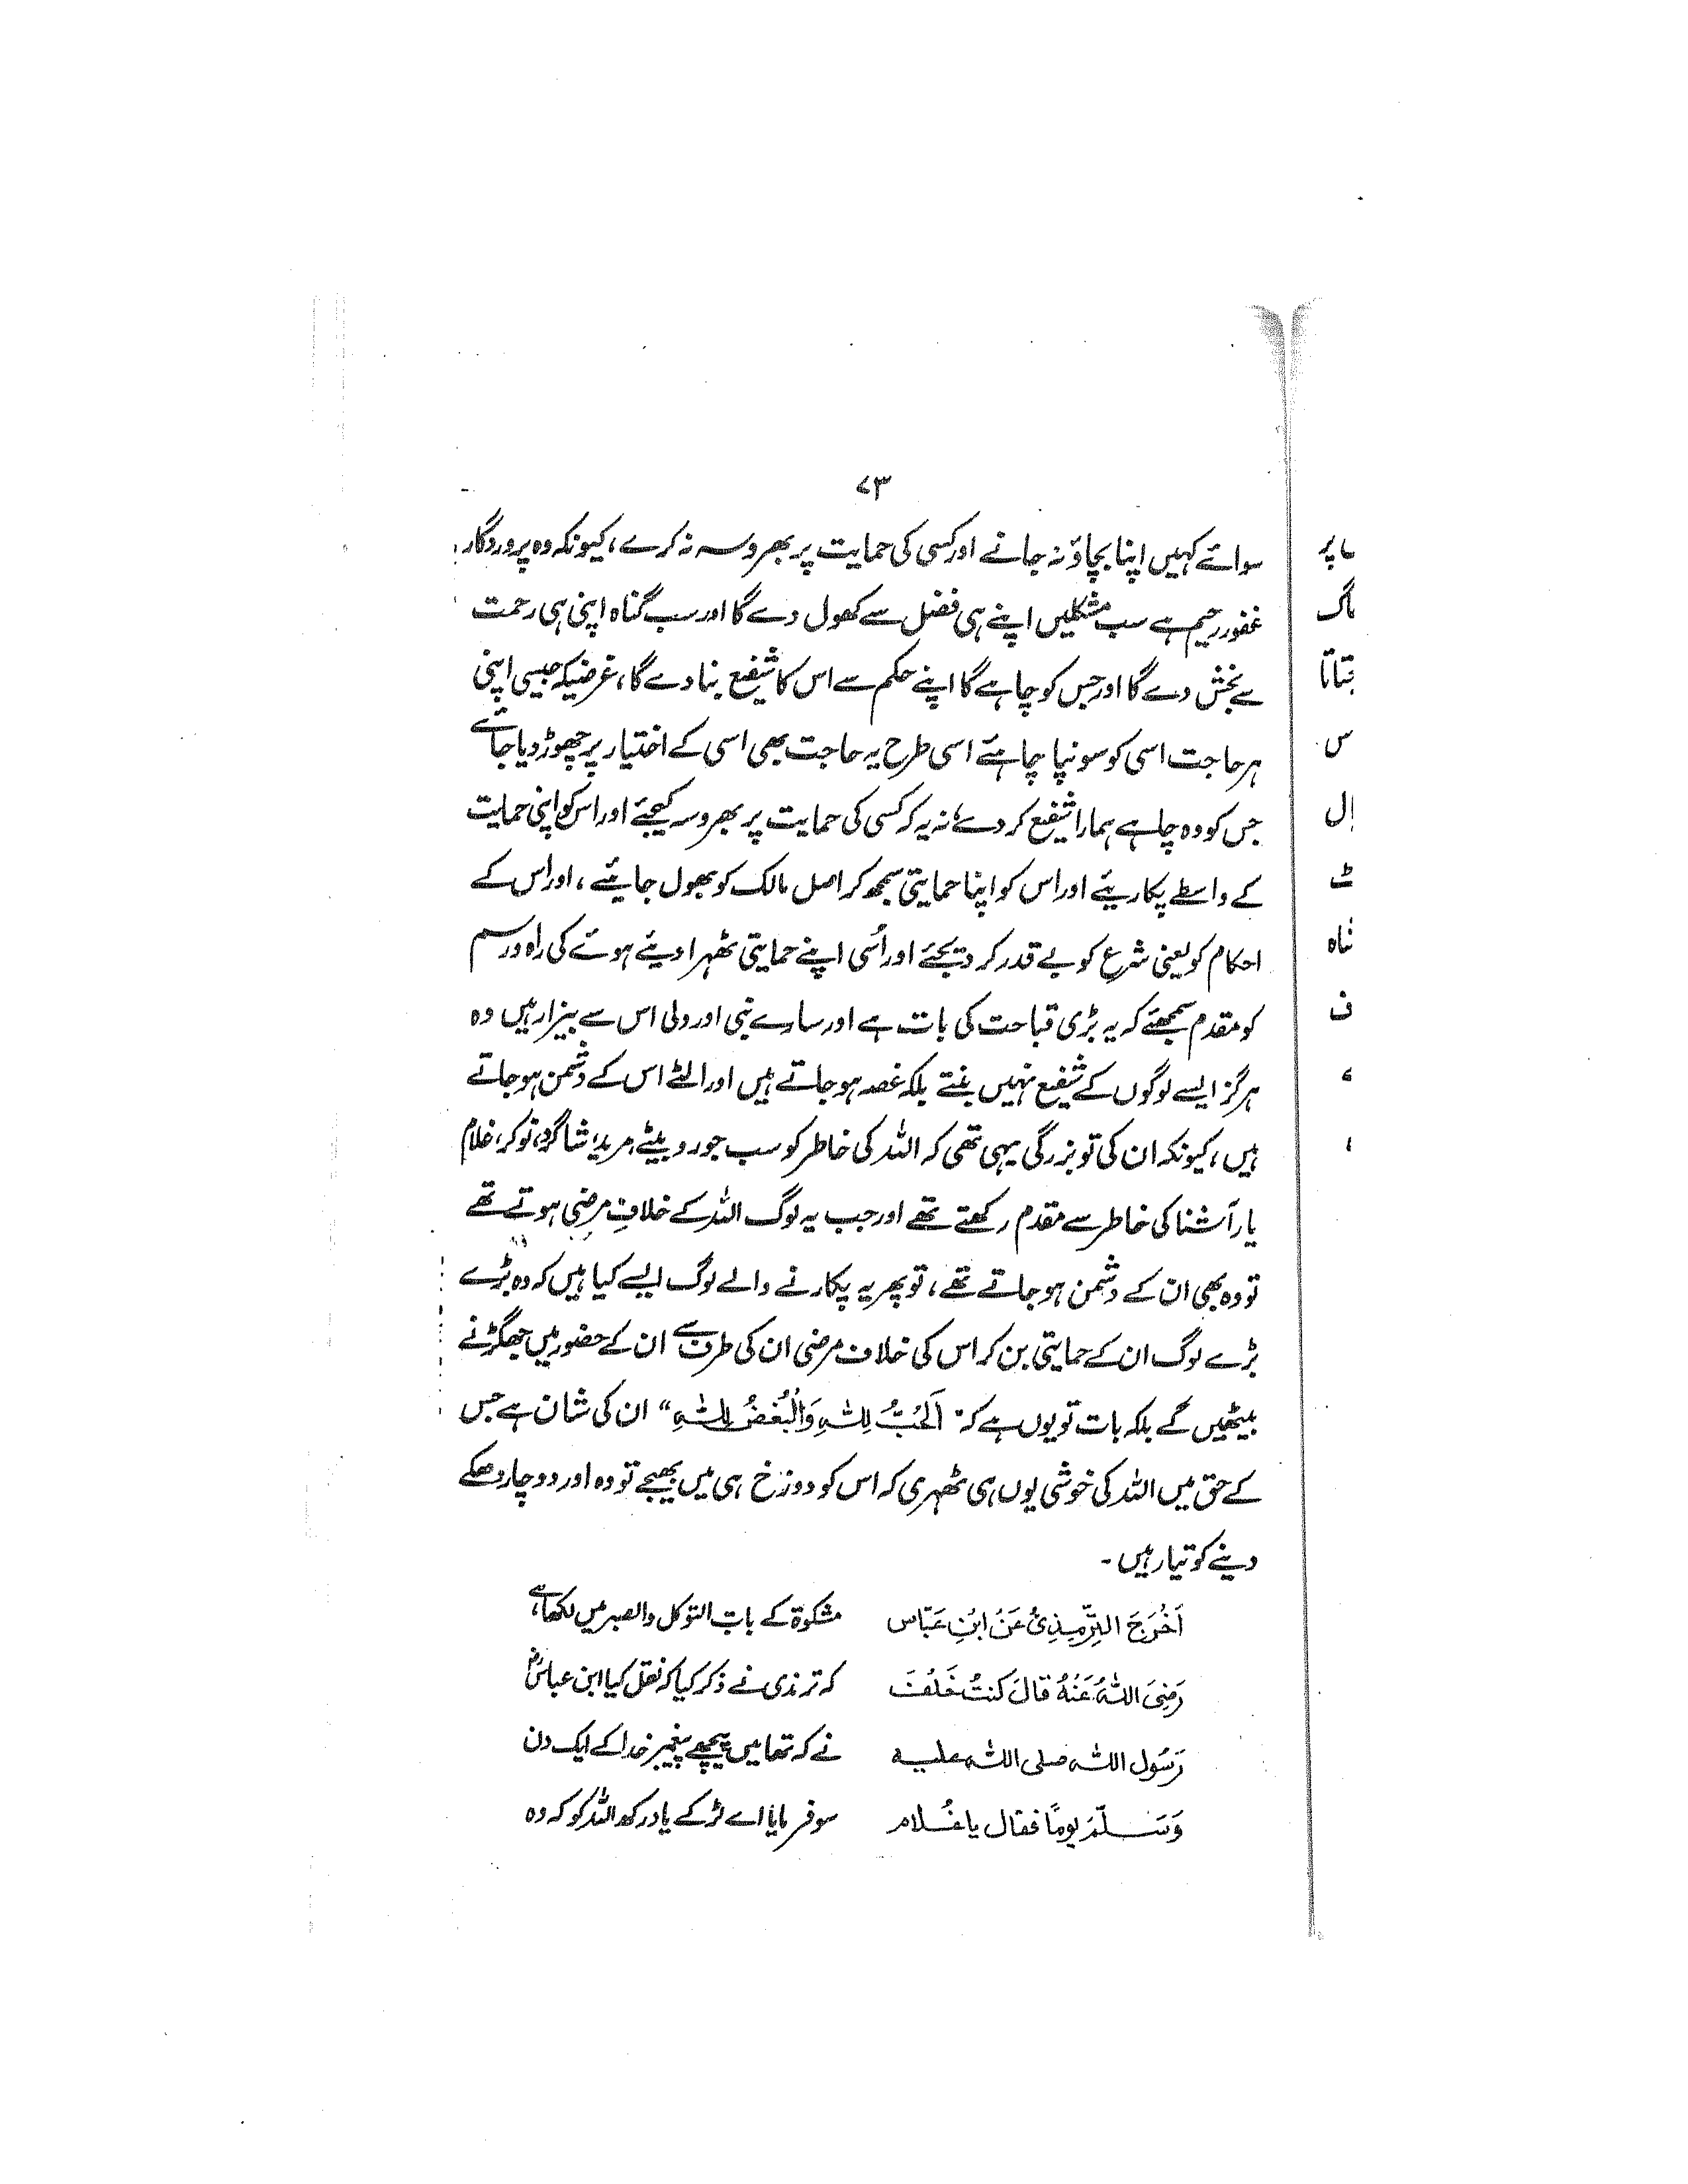 ۷۳
سوائے کہیں اپنا بچاؤ نہ جانے اور کسی کی حمایت پر بھروسہ نہ کرے، کیونکہ وہ پروردگار
غفور رحیم ہے سب مشکلیں اپنے ہی فضل سے کھول دے گا اور سب گناہ اپنی ہی رحمت
سے بخش دے گا اور جس کو چاہے گا اپنے حکم سے اس کا شفیع بنا دے گا، غرضیکہ جیسی اپنی
ہر حاجت اسی کو سونپا چاہئے اسی طرح یہ حاجت بھی اسی کے اختیار پر چھوڑ دیا جائے
جس کو وہ چاہے ہمارا شفیع کر دے، نہ یہ کہ کسی کی حمایت پر بھروسہ کیجئے اور اس کو اپنی حمایت
کے واسطے پکاریئے اور اس کو اپنا حمایتی سمجھ کر اصل مالک کو بھول جایئے، اور اس کے
احکام کو یعنی شرع کو بے قدر کر دیجئے اور اُسی اپنے حمایتی ٹھہرا دیئے ہوئے کی راہ و رسم
کو مقدم سمجھئے کہ یہ بڑی قباحت کی بات ہے اور سارے نبی اور ولی اس سے بیزار ہیں وہ
ہرگز ایسے لوگوں کے شفیع نہیں بنتے بلکہ غصہ ہو جاتے ہیں اور الٹے اس کے دشمن ہو جاتے
ہیں، کیونکہ ان کی تو بزرگی یہی تھی کہ اللہ کی خاطر کو سب جورو بیٹے، مرید، شاگرد، نوکر، غلام
یار آشنا کی خاطر سے مقدم رکھتے تھے اور جب یہ لوگ اللہ کے خلافِ مرضی ہوتے تھے
تو وہ بھی ان کے دشمن ہو جاتے تھے، تو پھر یہ پکارنے والے لوگ ایسے کیا ہیں کہ وہ بڑے
بڑے لوگ ان کے حمایتی بن کر اس کی خلاف مرضی ان کی طرف سے ان کے حضور میں جھگڑنے
بیٹھیں گے بلکہ بات تو یوں ہے کہ "اَلْحُبُّ لِلّٰہِ وَالْبُغْضُ لِلّٰہِ" ان کی شان ہے جس
کے حق میں اللہ کی خوشی یوں ہی ٹھہری کہ اس کو دوزخ ہی میں بھیجے تو وہ اور دو چار دھکے
دینے کو تیار ہیں۔
اَخْرَجَ التِّرْمِذِیُّ عَنْ ابْنِ عَبَّاس
رَضِیَ اللّٰہُ عَنْہُ قَالَ کُنْتُ خَلْفَ
رَسُول اللّٰہ صلی اللّٰہ علیہ
وَسَلَّمَ یومًا فقال یا غُلام
مشکوٰۃ کے باب التوکل والصبر میں لکھا ہے،
کہ ترمذی نے ذکر کیا کہ نقل کیا ابن عباسؓ
نے کہ تھا میں پیچھے پیغمبر خدا کے ایک دن
سو فرمایا اے لڑکے یاد رکھ اللہ کو کہ وہ